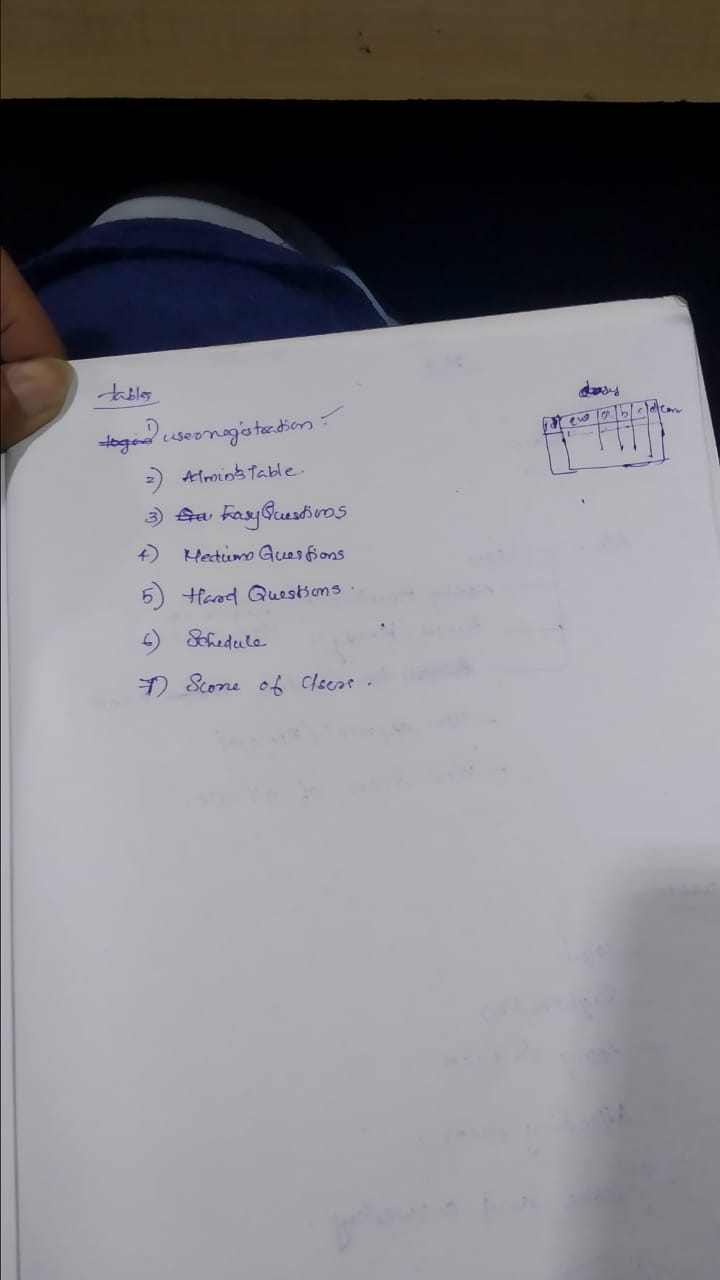 tables
1) userregistration
2) Admin's Table.
3) Easy Questions
4) Medium Questions
5) Hard Questions.
6) Schedule
7) Score of Users.
easy
id que a b c d